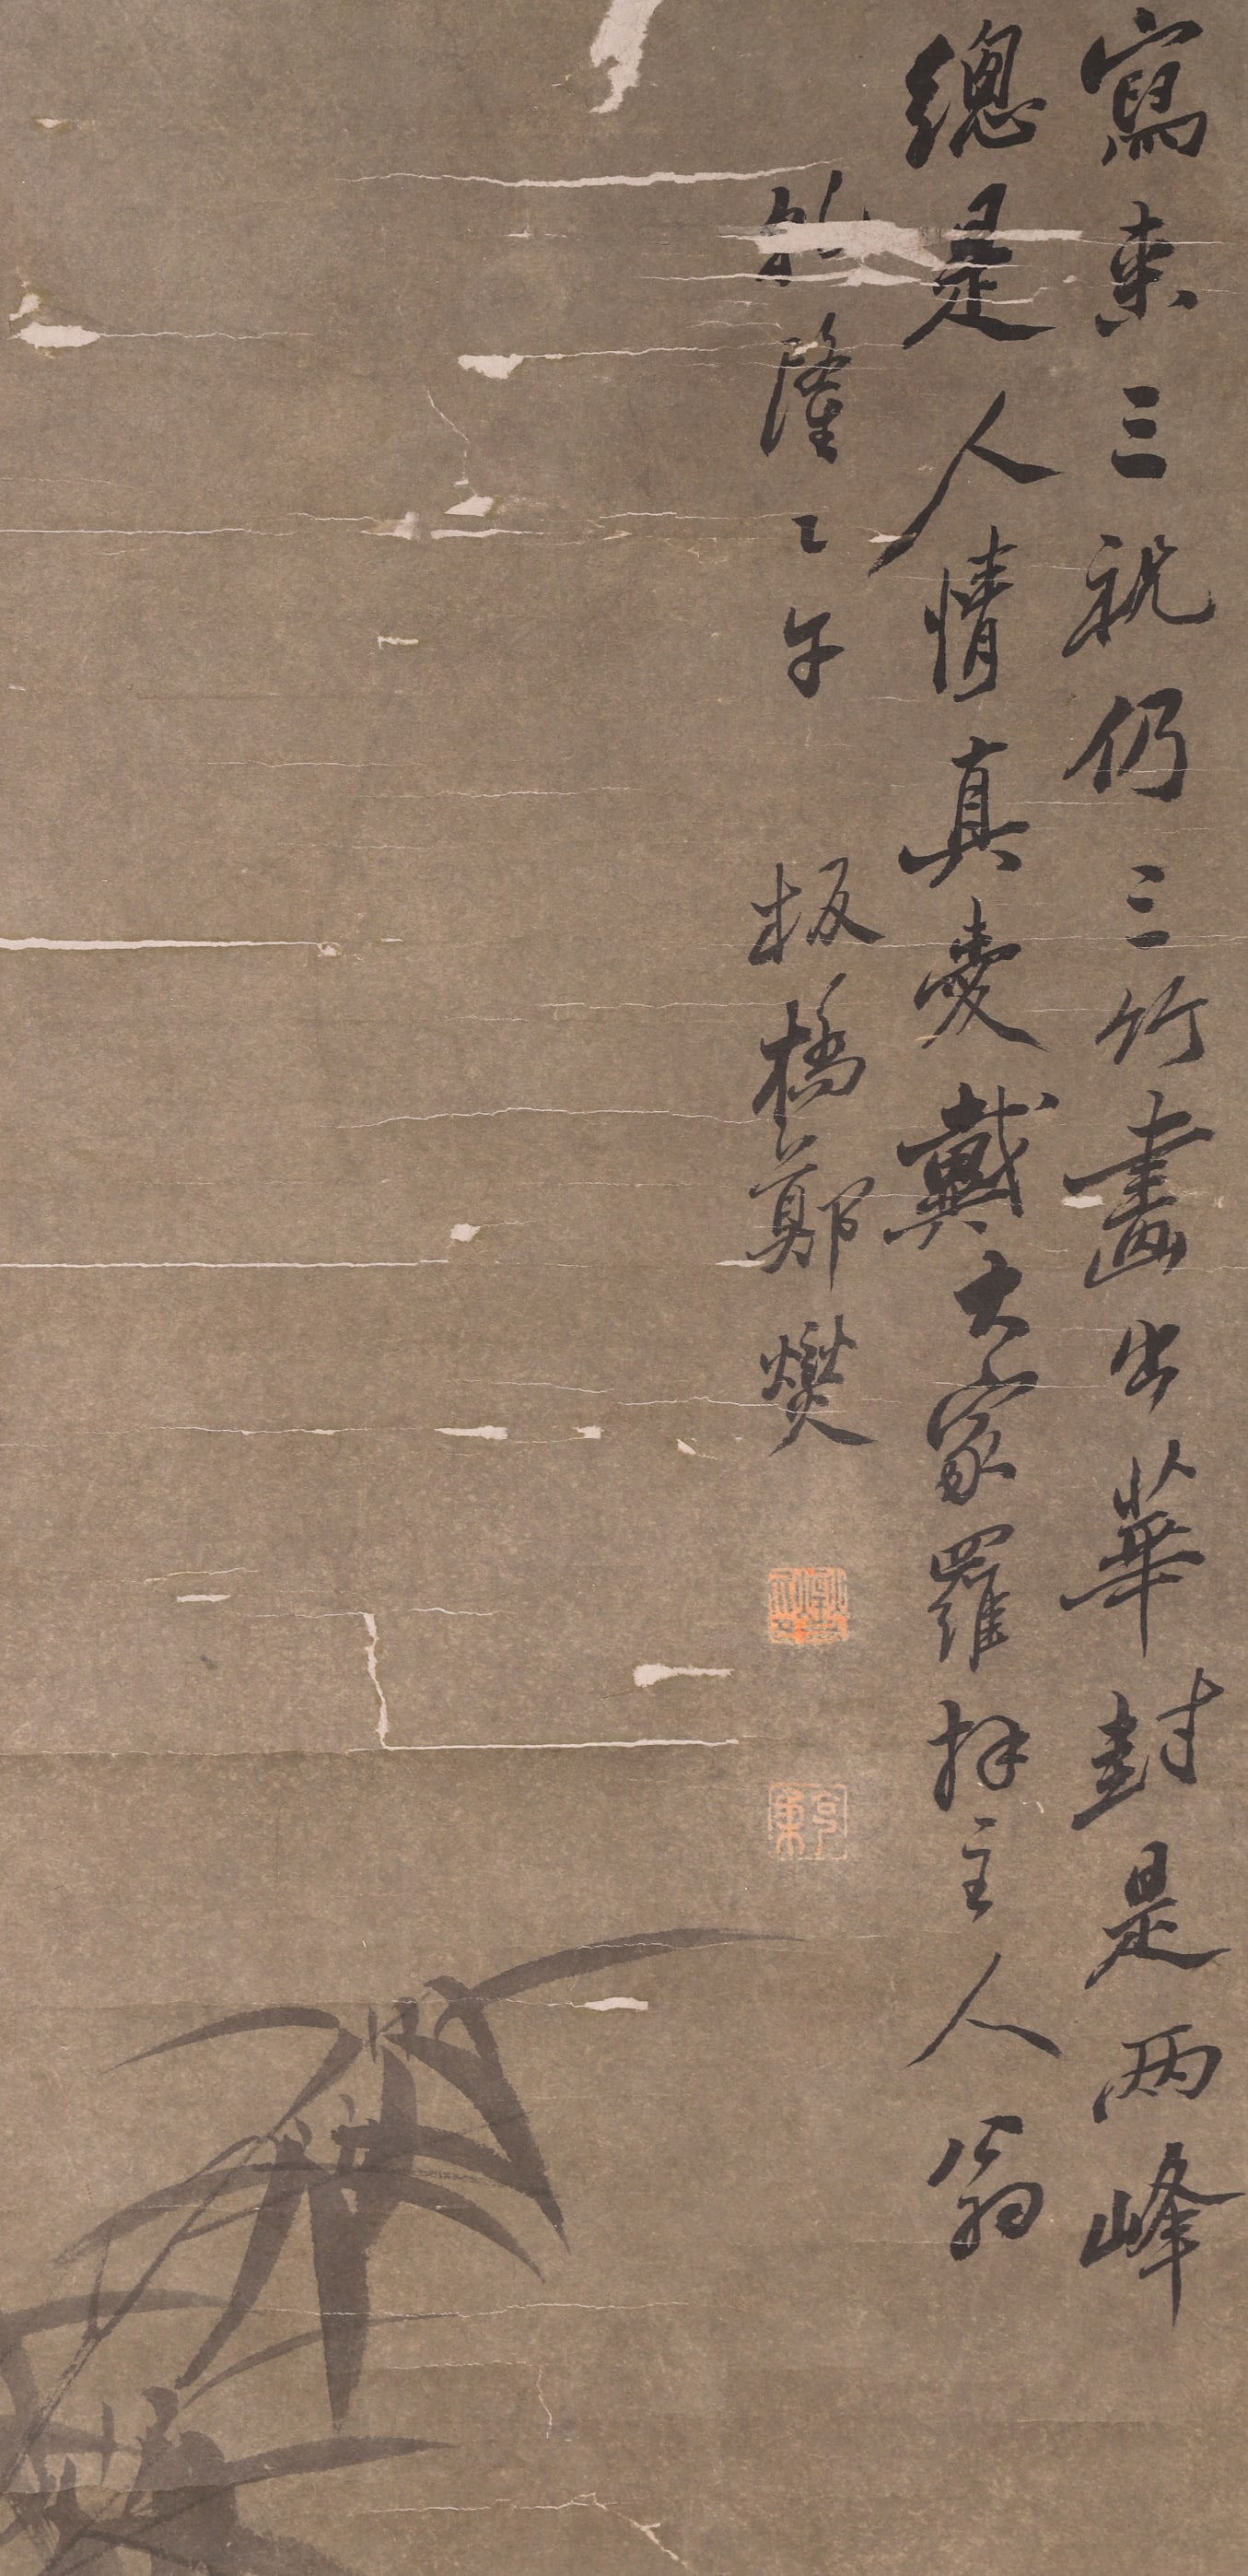 寫來三祝仍三竹畫出華封是兩峰
總是人情真愛戴大家羅拜主人翁
乾隆乙午 板橋鄭燮